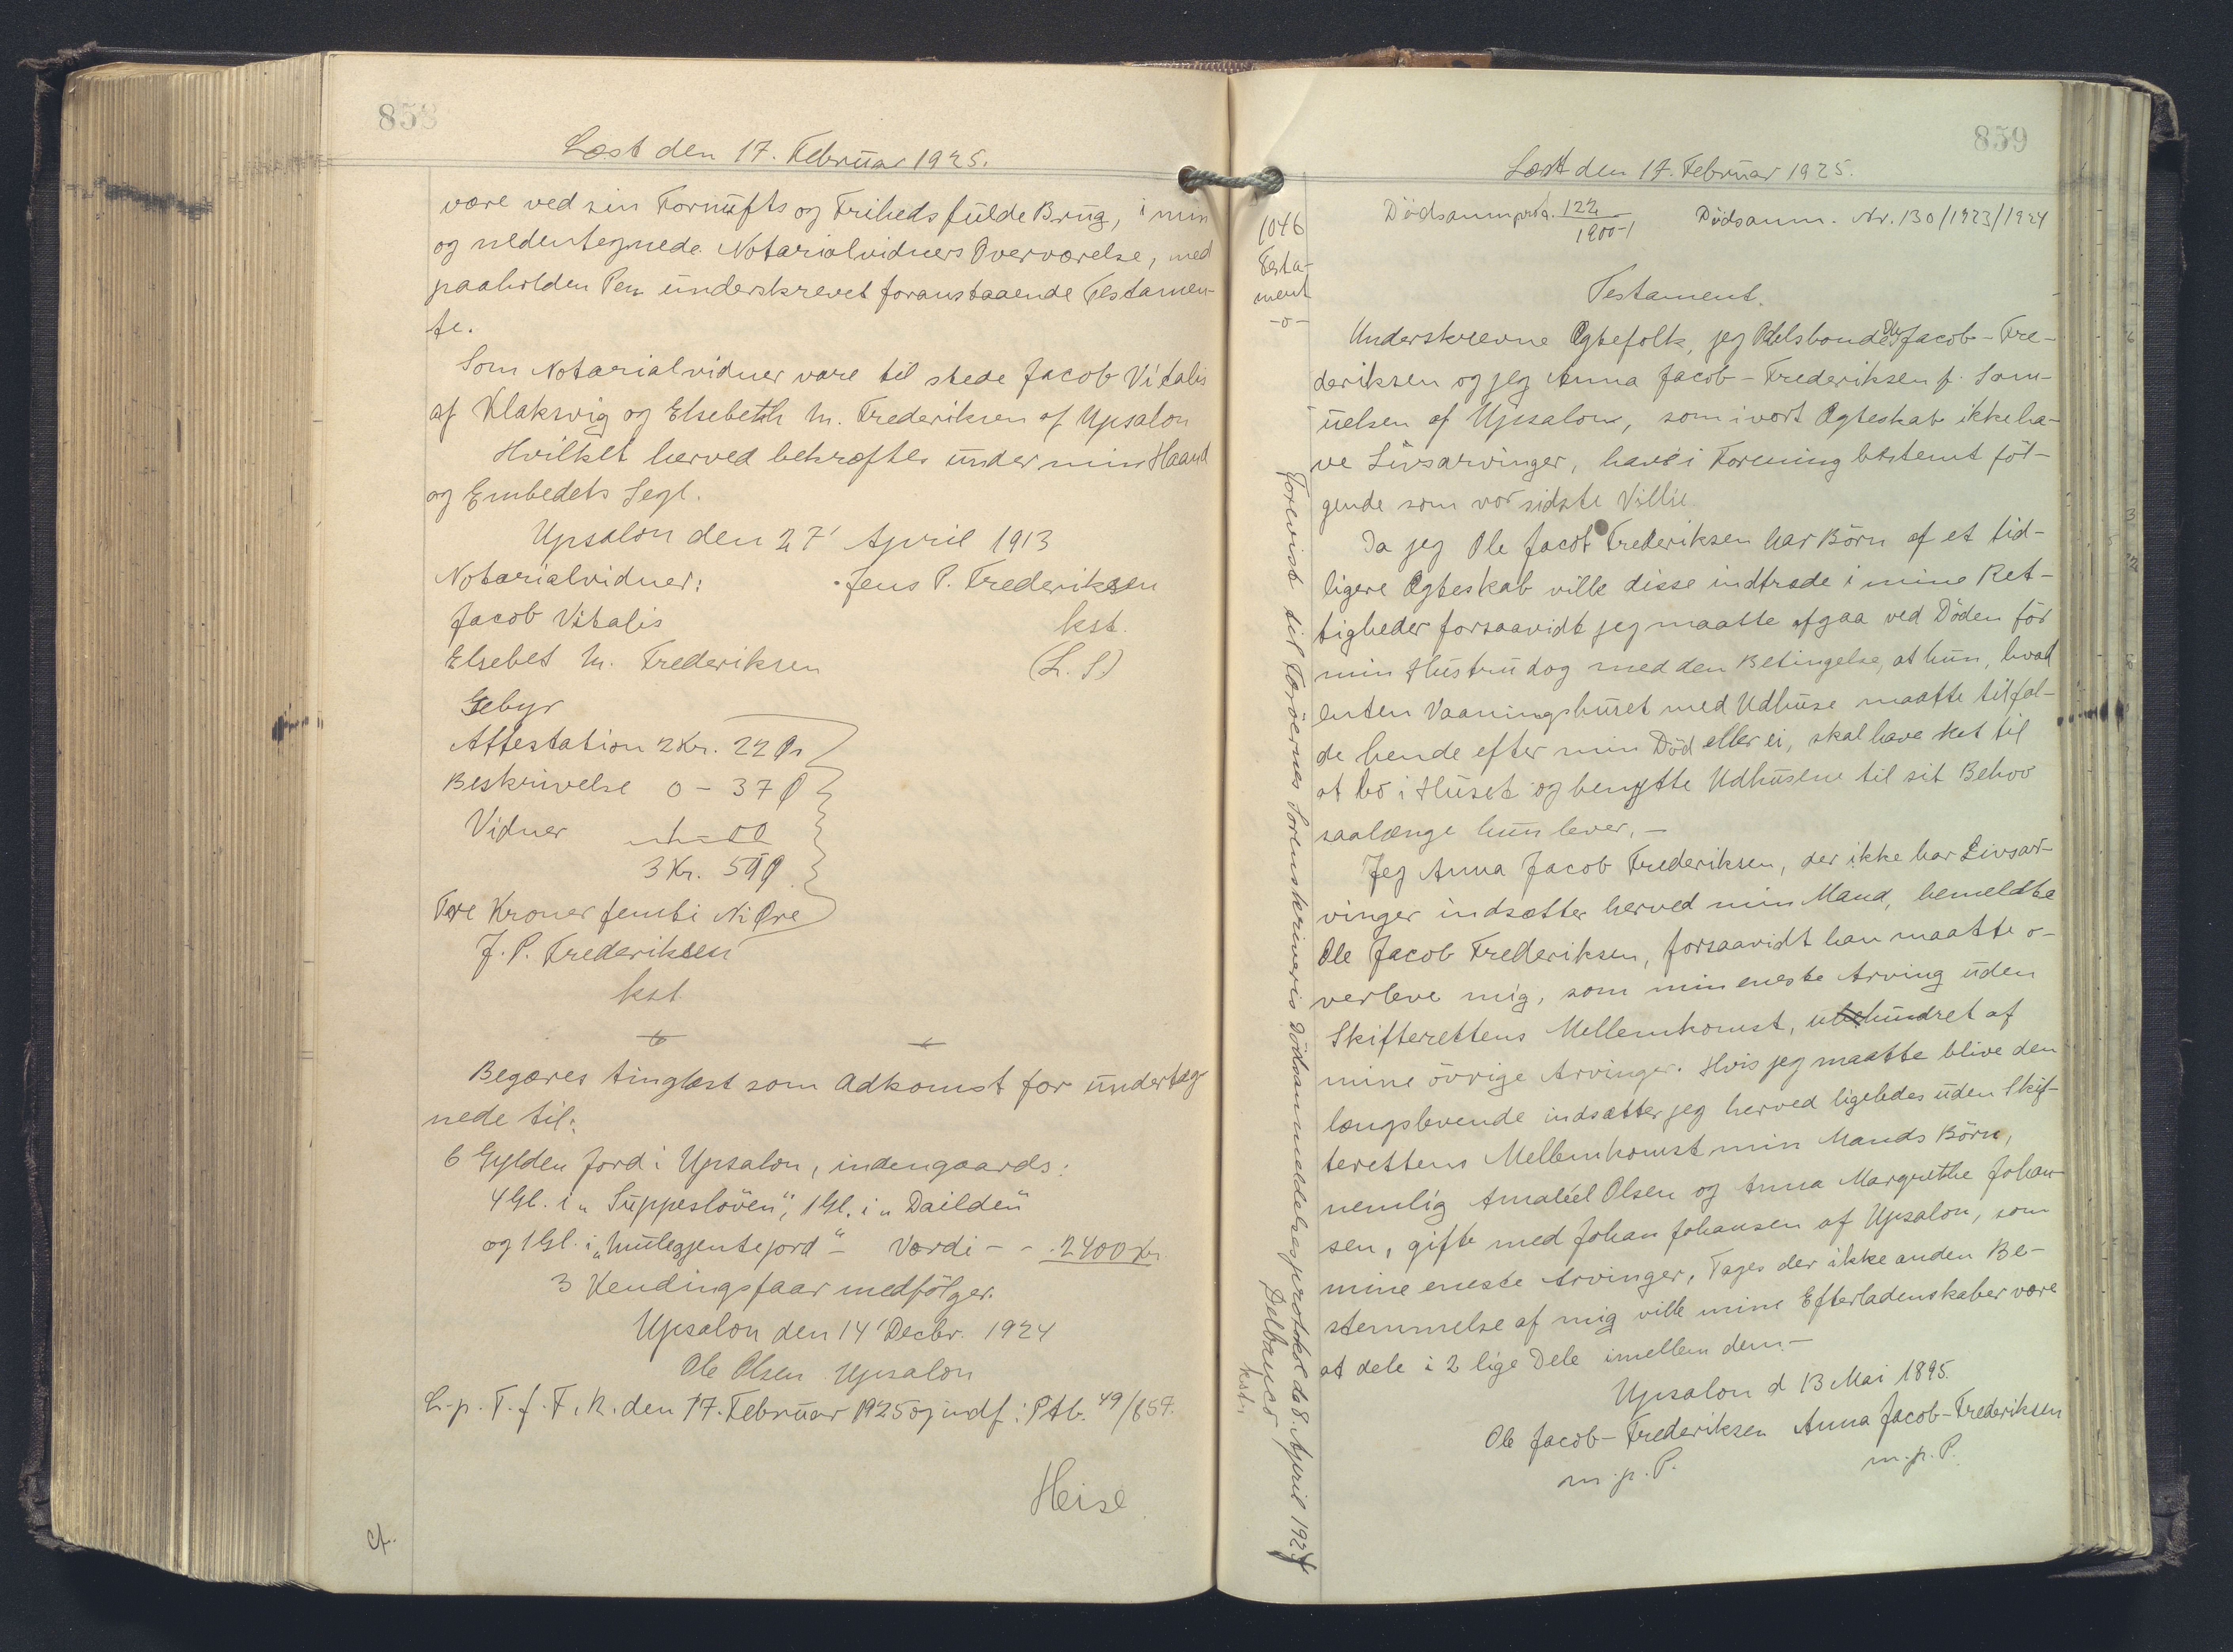 858
Læst den 17. Februar 1925.
være ved sin Fornufts og Friheds fulde Brug, i min
og nedentegnede Notarialvidners Overværelse, med
paaholden Pen underskrevet foranstaaende Testamen-
te.
Som Notarialvidner vare til stede Jacob Vitalis
af Klaksvig og Elsebeth M. Frederiksen af Upsalon
Hvilket herved bekræftes under min Haand
og Embedets Segl.
Upsalon den 27' April 1913
Notarialvidner: Jens P. Frederiksen
Jacob Vitalis kst.
Elsebet M. Frederiksen (L. S.)
Gebyr
Attestation 2 Kr. 22 Ør
Beskrivelse 0 - 37 Ø
Vidner
3 Kr. 59 Ø.
Tre Kroner femti Ni Øre
J. P. Frederiksen
kst
Begæres tinglæst som Adkomst for underteg
nede til:
6 Gylden Jord i Upsalon, indengaards:
4 Gl. i „Suppesløven", 1 Gl. i „Dailden"
og 1 Gl. i „Mulegjentejord" - Værdi - - 2400 Kr.
3 Kendingsfaar medfölger.
Upsalon den 14' Decbr. 1924
Ole Olsen Upsalon
L. p. T. f. F. R. den 17. Februar 1925 og indf. i Ptb. 49/857.
Heise
cf.
859
Læst den 17. Februar 1925.
1046
Testa-
ment
-o-
Dödsanmprot. 122/1900-1 Dödsanm. Nr. 130/1923/1924
Testament.
Underskrevne Ægtefolk, jeg Odelsbonde Ole Jacob-Fre-
deriksen og jeg Anna Jacob-Frederiksen f. Sam-
uelsen af Upsalon, som i vort Ægteskab ikke ha-
ve Livsarvinger, have i Forening bestemt föl-
gende som vor sidste Villie.
Da jeg Ole Jacob Frederiksen har Börn af et tid-
ligere Ægteskab ville disse indtræde i mine Ret-
tigheder forsaavidt jeg maatte afgaa ved Döden för
min Hustru dog med den Betingelse, at hun, hvad
enten Vaaningshuset med Udhuse maatte tilfal-
de hende efter min Död eller ei, skal have Ret til
at bo i Huset og benytte Udhusene til sit Behov
saalænge hun lever. -
Jeg Anna Jacob Frederiksen, der ikke har Livsar-
vinger indsætter herved min Mand, bemeldte
Ole Jacob Frederiksen, forsaavidt han maatte o-
verleve mig, som min eneste Arving uden
Skifterettens Mellemkomst, uhindret af
mine övrige Arvinger. Hvis jeg maatte blive den
længslevende indsætter jeg herved ligeledes uden Skif-
terettens Mellemkomst min Mands Börn,
nemlig Amaliel Olsen og Anna Margrethe Johan-
sen, gift med Johan Johansen af Upsalon, som
mine eneste Arvinger, Tages der ikke anden Be-
stemmelse af mig ville mine Efterladenskaber være
at dele i 2 lige Dele imellem dem. -
Upsalon d 13 Mai 1895.
Ole Jacob-Frederiksen Anna Jacob-Frederiksen
m. p. P. m. p. P.
Forevist til Færöernes Sorenskriveris Dödsanmeldelsesprotokol d. 8. April 1924
Delbanco
kst.